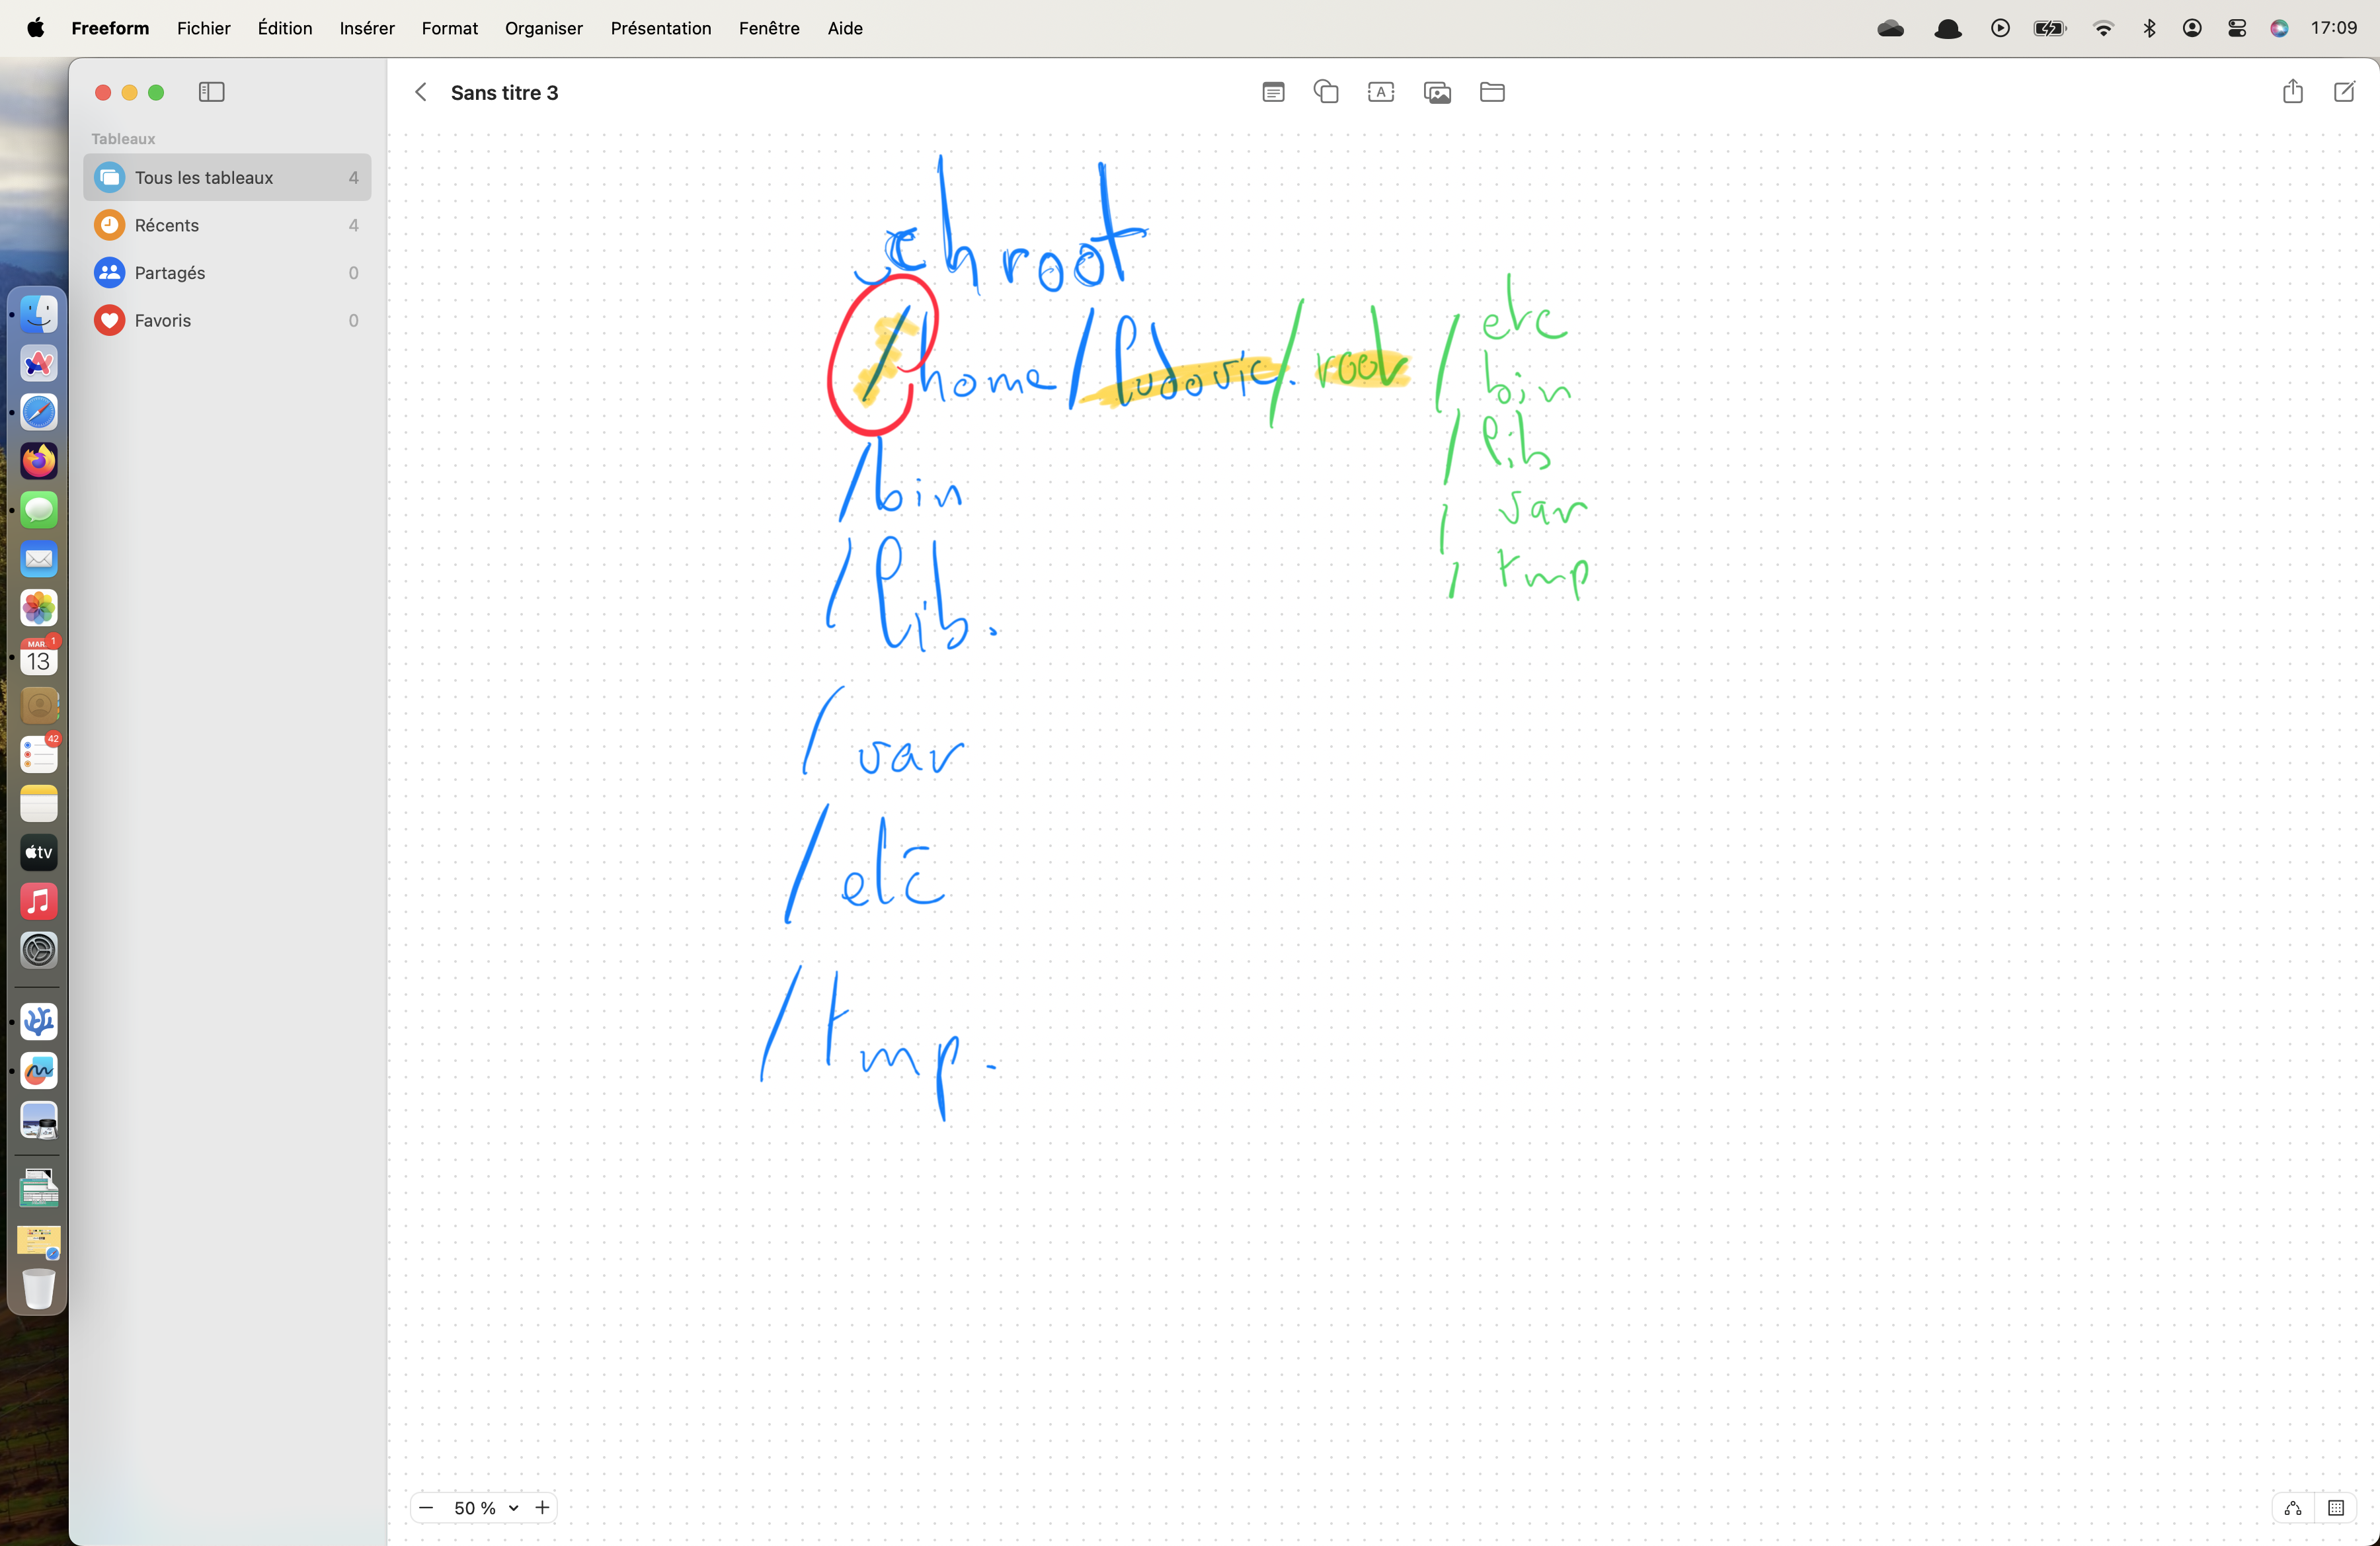 Freeform Fichier Édition Insérer Format Organiser Présentation Fenêtre Aide 17:09
Sans titre 3
Tableaux
Tous les tableaux 4
Récents 4
Partagés 0
Favoris 0
chroot
/home/ludovic. /root / etc
bin
/ lib
/ var
/ tmp
/bin
/lib.
/var
/etc
/tmp.
MAR. 1
13
42
tv
A
50 %